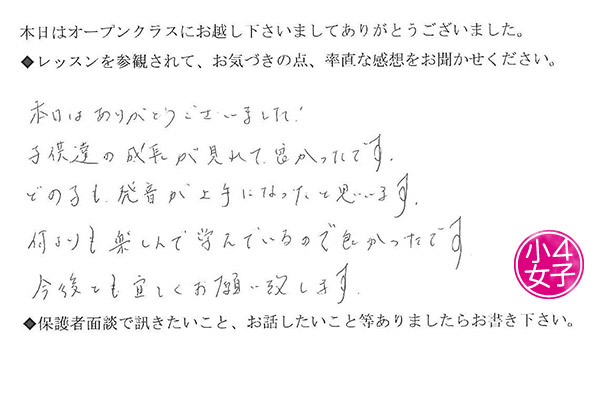 本日はオープンクラスにお越し下さいましてありがとうございました。
◆レッスンを参観されて、お気づきの点、率直な感想をお聞かせください。
本日はありがとうございました!
子供達の成長が見れて、良かったです。
どの子も、発音が上手になったと思います。
何よりも楽しんで学んでいるので良かったです。
今後とも宜しくお願い致します。
小4
女子
◆保護者面談で訊きたいこと、お話したいこと等ありましたらお書き下さい。